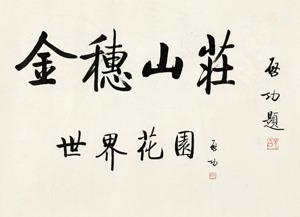 金穗山莊
啟功題
世界花園
啟功